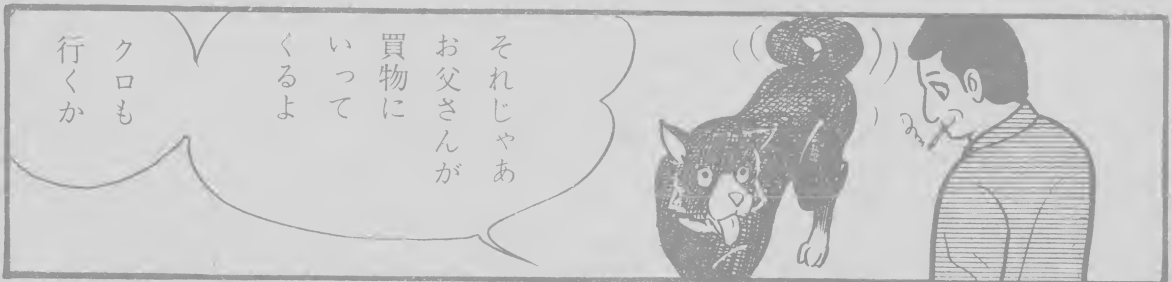 それじゃあ
お父さんが
買物に
いって
くるよ
クロも
行くか